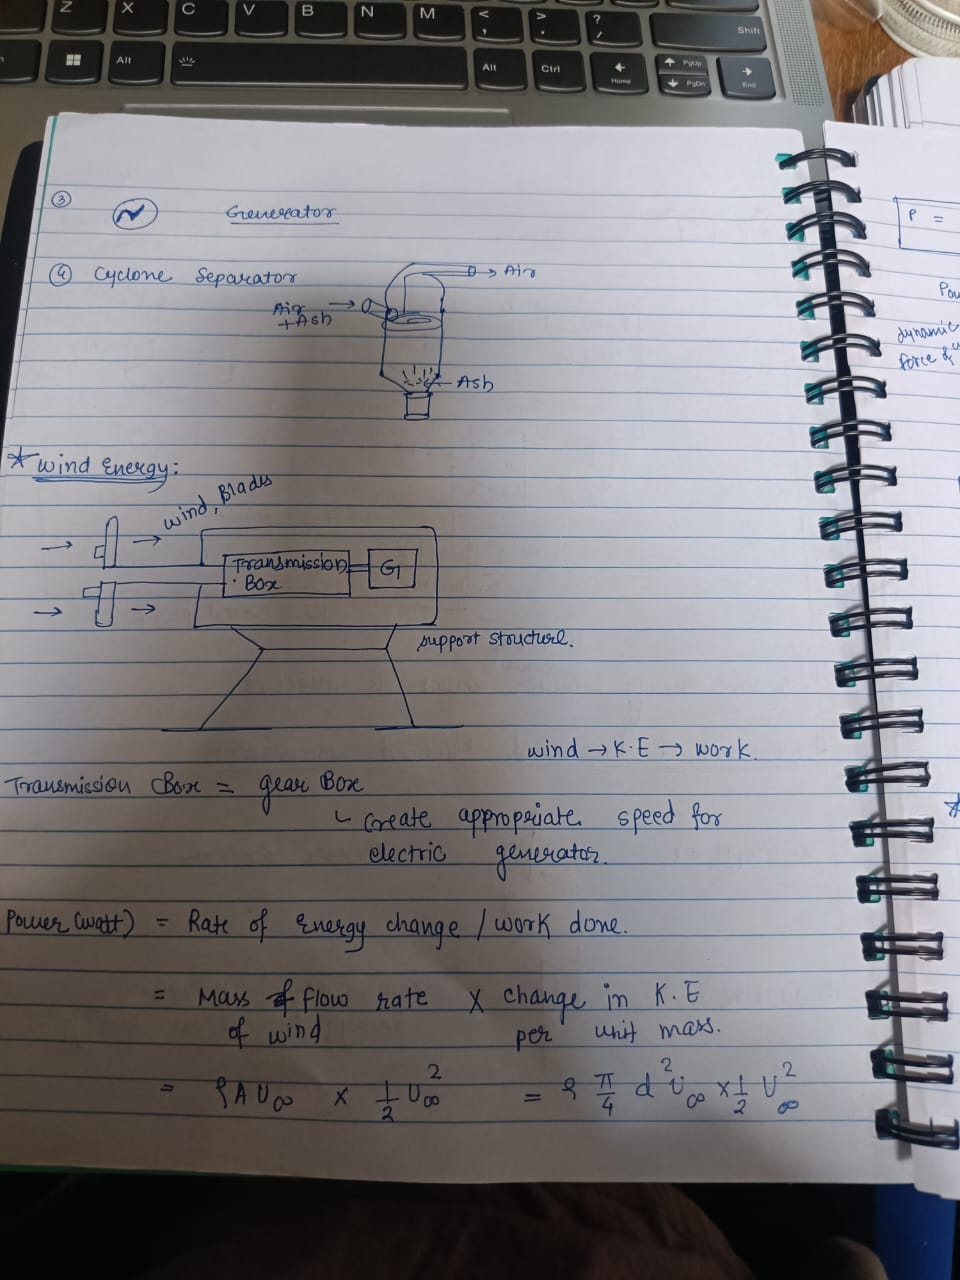 Z X C V B N M < , > . ? / Shift
Alt Alt Ctrl Home PgUp PgDn End
③ Generator
④ Cyclone Separator
→ Air
Air + Ash →
← Ash
* Wind Energy:
→ → wind, Blades
Transmission Box = G
→ →
support structure.
wind → K.E → work.
Transmission Box = gear Box
↳ Create appropriate speed for
electric generator.
Power (watt) = Rate of Energy change / work done.
= Mass of flow rate × change in K.E
of wind per unit mass.
= ρ A U∞ × 1/2 U∞² = ρ π/4 d² U∞ × 1/2 U∞²
P =
dynamic
force of